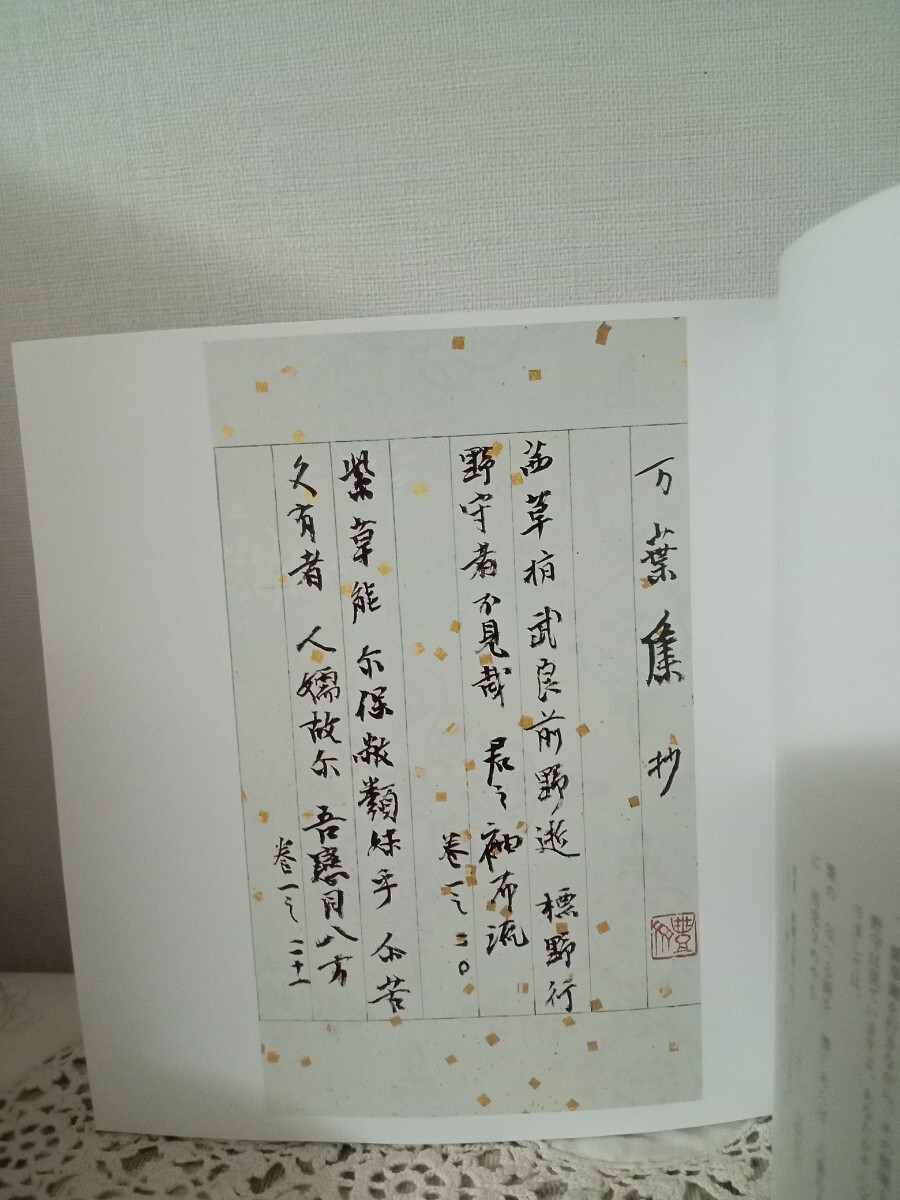 万葉集抄
茜草指武良前野逝 標野行
野守者不見哉 君之袖布流
巻一之二〇
紫草能 尓保敝類妹乎 尓苦
久有者 人嬬故尓 吾戀目八方
巻一之二十一